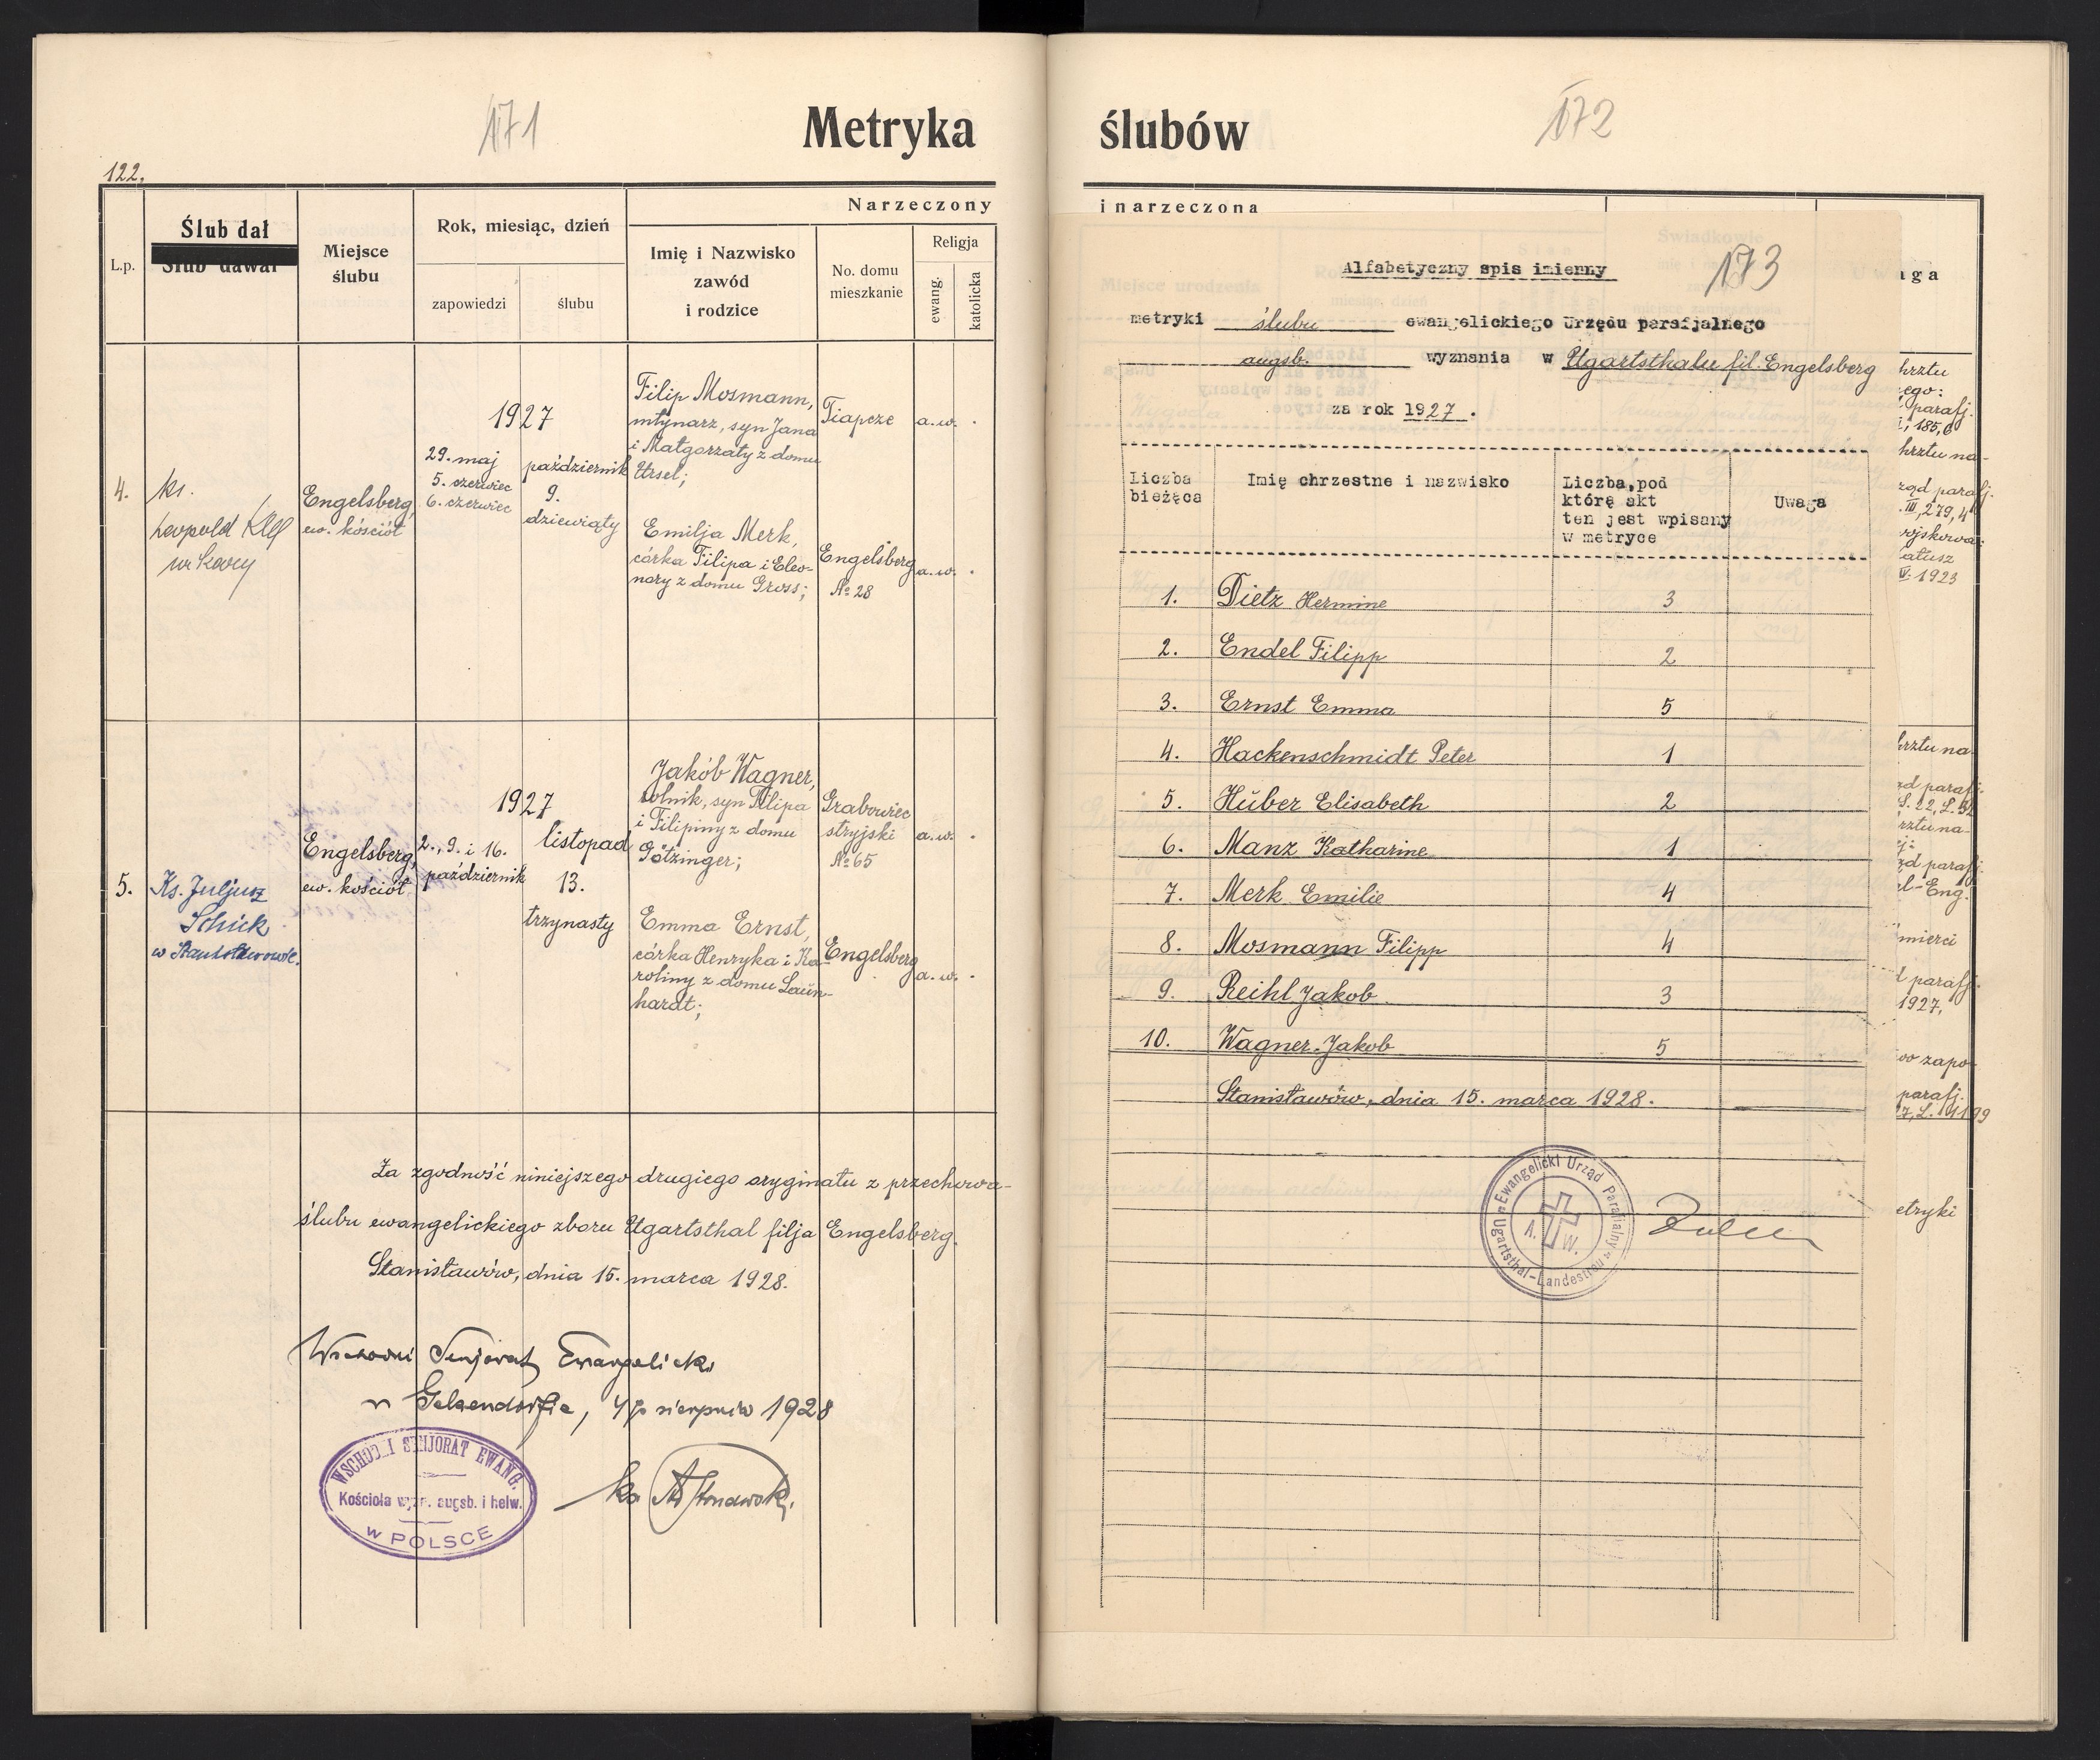 171
Metryka
122.
L.p.
Ślub dał
Ślub dawał
Miejsce
ślubu
Rok, miesiąc, dzień
zapowiedzi
ślubu
Narzeczony
Imię i Nazwisko
zawód
i rodzice
No. domu
mieszkanie
Religja
ewang.
katolicka
4.
ks.
Leopold
Engelsberg,
ew. kościół
1927
29. maj
5. czerwiec
6. czerwiec
październik
9.
dziewiąty
Filip Mosmann,
młynarz, syn Jana
i Małgorzaty z domu
Ursel;
Tiapcze
a.w.
Emilja Merk,
córka Filipa i Eleo-
nory z domu Gross;
Engelsberg
№ 28
a.w.
5.
Ks. Juljusz
Schick
w Stanisławowie.
Engelsberg,
ew. kościół
1927
2., 9. i 16.
październik
listopad
13.
trzynasty
Jakób Wagner,
rolnik, syn Filipa
i Filipiny z domu
Götzinger;
Grabowiec
stryjski
№ 65
a.w.
Emma Ernst,
córka Henryka i Ka-
roliny z domu Laün-
hardt;
Engelsberg
a.w.
Za zgodność niniejszego drugiego oryginału z przechowa-
ślubu ewangelickiego zboru Ugartsthal filja Engelsberg.
Stanisławów, dnia 15. marca 1928.
Wschodni Senjorat Ewangelicki
w Gelsendorfie, 4/8 sierpnia 1928
WSCHODNI SENJORAT EWANG.
Kościoła wyzn. augsb. i helw.
w POLSCE
172
ślubów
i narzeczona
Alfabetyczny spis imienny
173
metryki ślubu ewangelickiego Urzędu parafjalnego
augsb. wyznania w Ugartsthalu fil. Engelsberg
za rok 1927.
Liczba
bieżąca
Imię chrzestne i nazwisko
Liczba,pod
którę akt
ten jest wpisany
w metryce
Uwaga
1. Dietz Hermine 3
2. Endel Filipp 2
3. Ernst Emma 5
4. Hackenschmidt Peter 1
5. Hüber Elisabeth 2
6. Manz Katharine 1
7. Merk Emilie 4
8. Mosmann Filipp 4
9. Reihl Jakob 3
10. Wagner Jakob 5
Stanisławów, dnia 15. marca 1928.
Ewangelicki Urząd Parafialny
A. W.
Ugartsthal-Landestreu
aga
hrztu
ego:
parafj.
hrztu na-
rząd parafj.
III, 279, 4
ojskowa:
atusz
IV. 1923
hrztu na-
ąd parafj.
rztu na-
ąd parafj.
l-Eng.
mierci
d parafj.
1927,
wo zapo-
parafj.
etryki